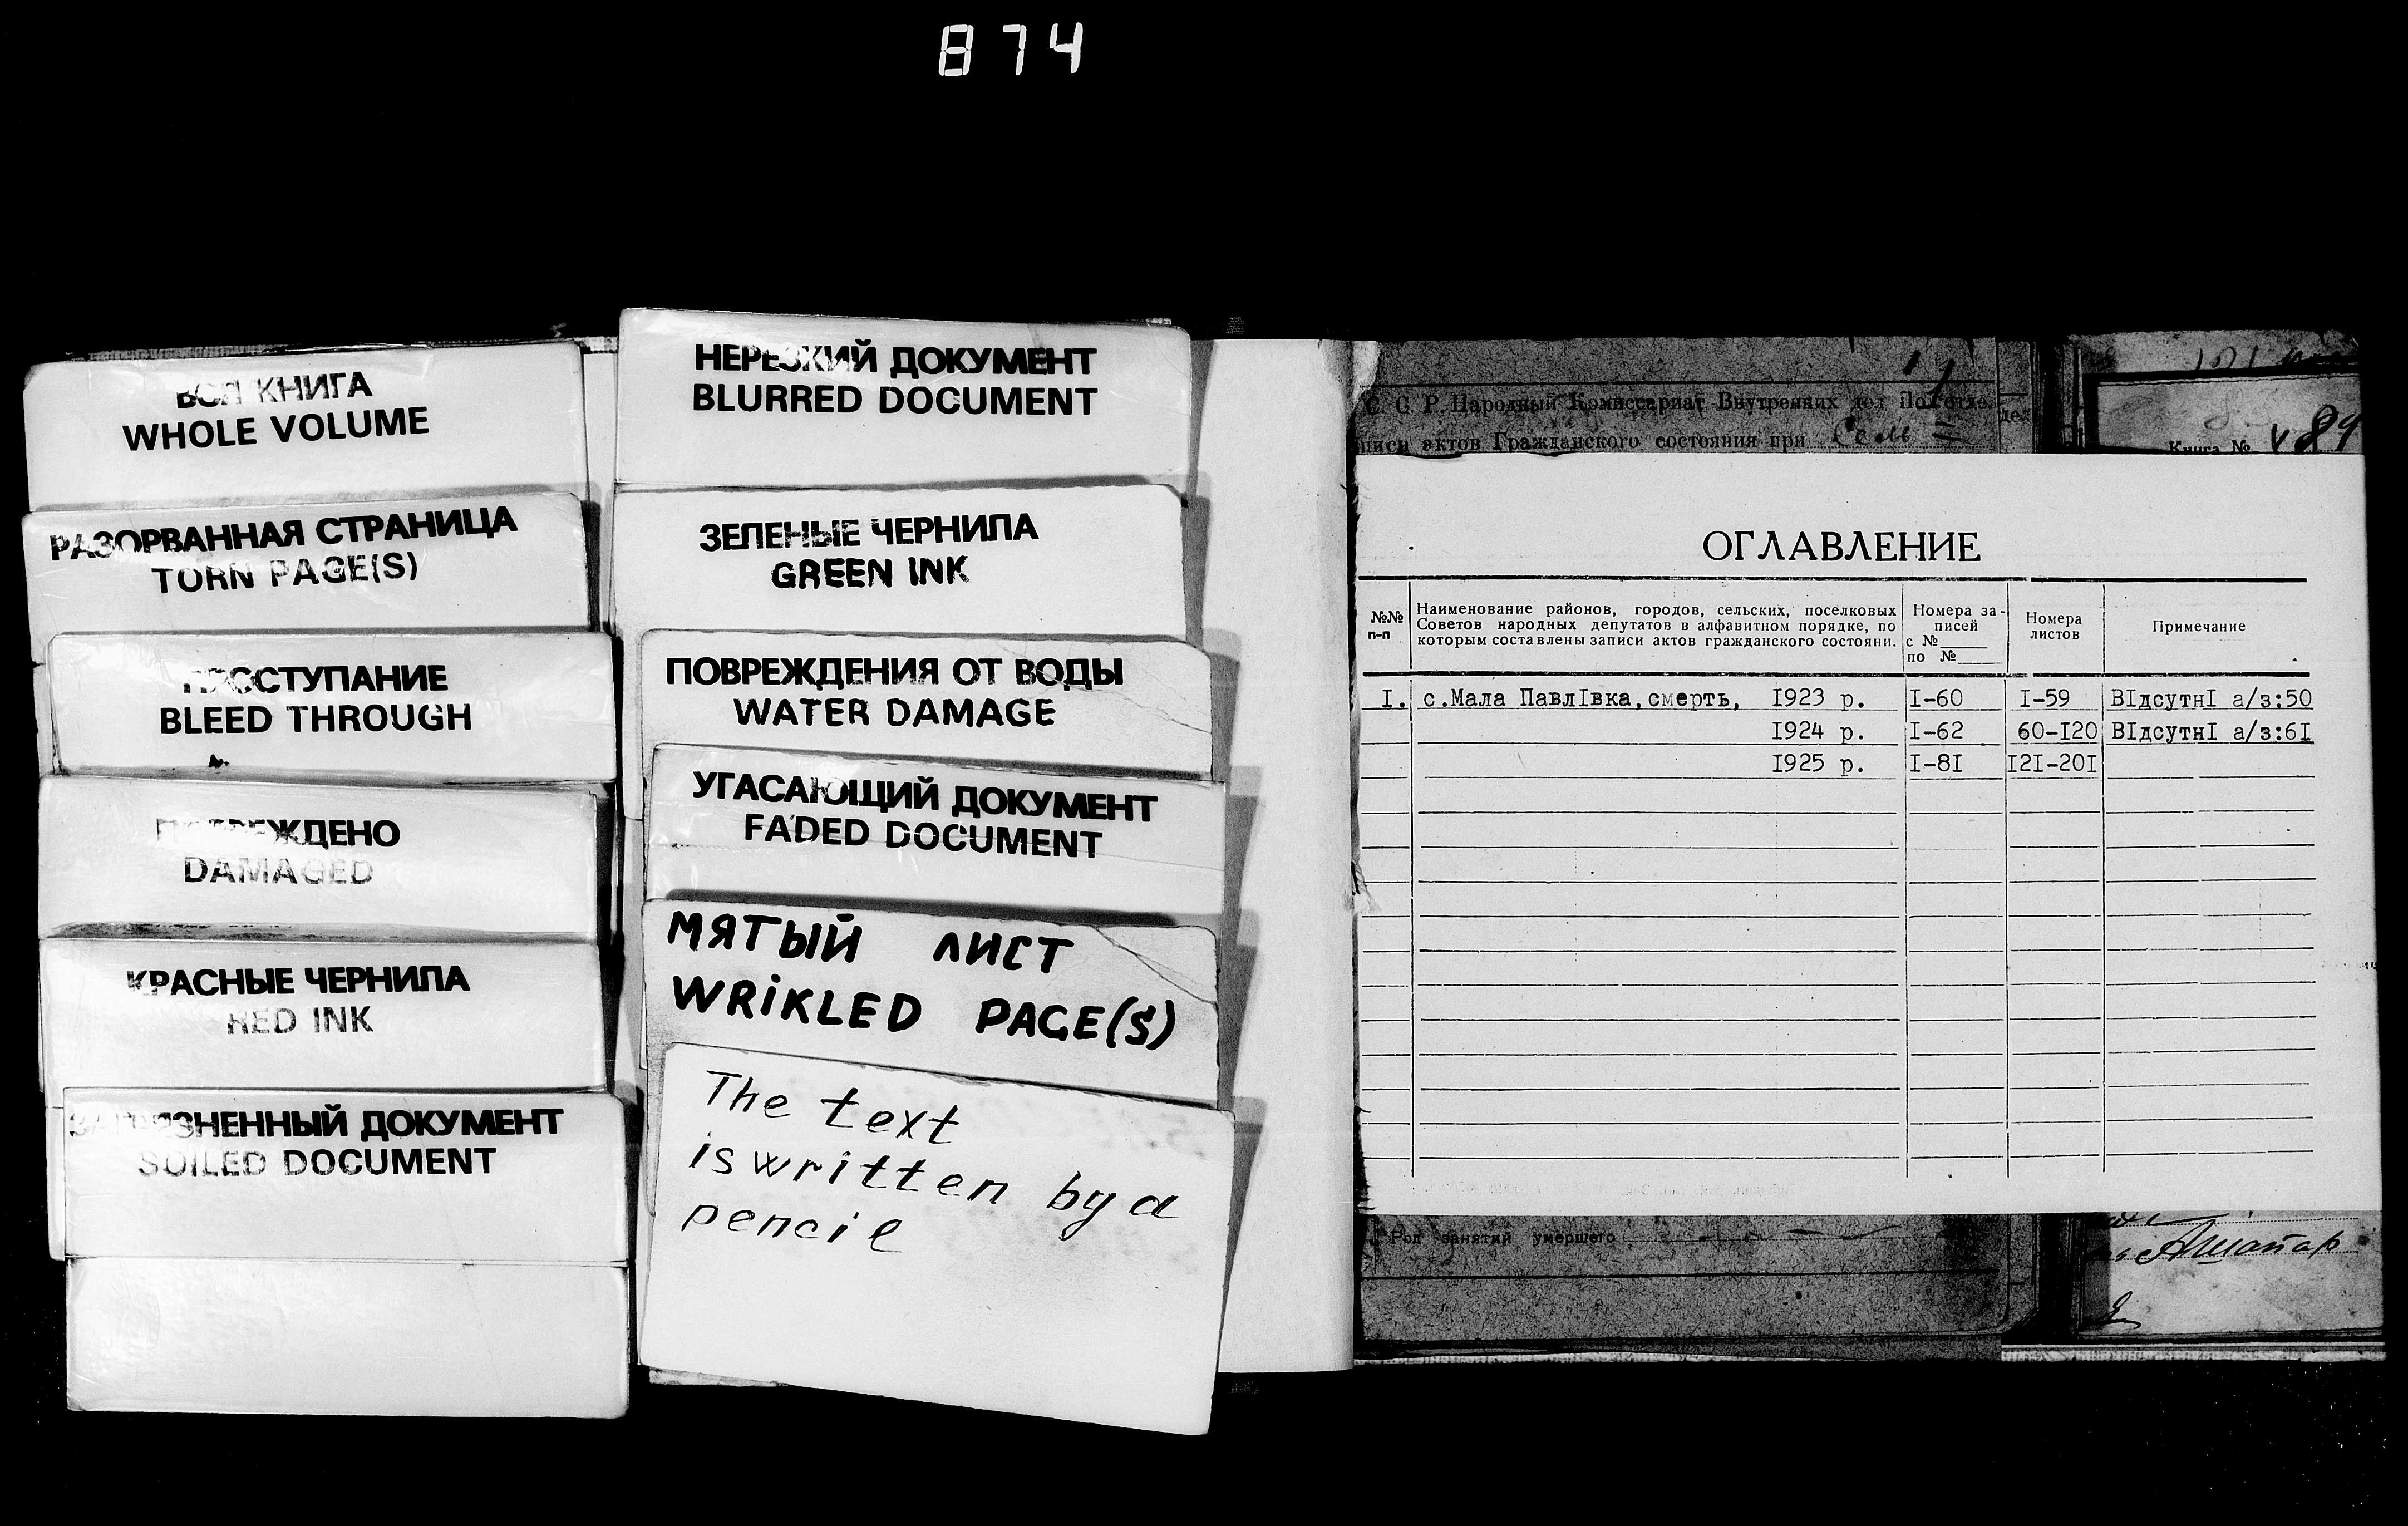 874
ВСЯ КНИГА
WHOLE VOLUME
РАЗОРВАННАЯ СТРАНИЦА
TORN PAGE(S)
ПРОСТУПАНИЕ
BLEED THROUGH
ПОВРЕЖДЕНО
DAMAGED
КРАСНЫЕ ЧЕРНИЛА
RED INK
ЗАГРЯЗНЕННЫЙ ДОКУМЕНТ
SOILED DOCUMENT
НЕРЕЗКИЙ ДОКУМЕНТ
BLURRED DOCUMENT
ЗЕЛЕНЫЕ ЧЕРНИЛА
GREEN INK
ПОВРЕЖДЕНИЯ ОТ ВОДЫ
WATER DAMAGE
УГАСАЮЩИЙ ДОКУМЕНТ
FADED DOCUMENT
МЯТЫЙ ЛИСТ
WRIKLED PAGE(S)
The text
is written by a
pencil
С. С. Р. Народный Комиссариат Внутренних дел
писи актов Гражданского состояния при
Книга № 89
ОГЛАВЛЕНИЕ
№№ п-п
Наименование районов, городов, сельских, поселковых
Советов народных депутатов в алфавитном порядке, по
которым составлены записи актов гражданского состояни.
Номера за-
писей
с №
по №
Номера
листов
Примечание
I. с.Мала ПавлIвка,смерть, I923 р. I-60 I-59 ВIдсутнI а/з:50
I924 р. I-62 60-I20 ВIдсутнI а/з:6I
I925 р. I-8I I2I-20I
Род занятий умершего